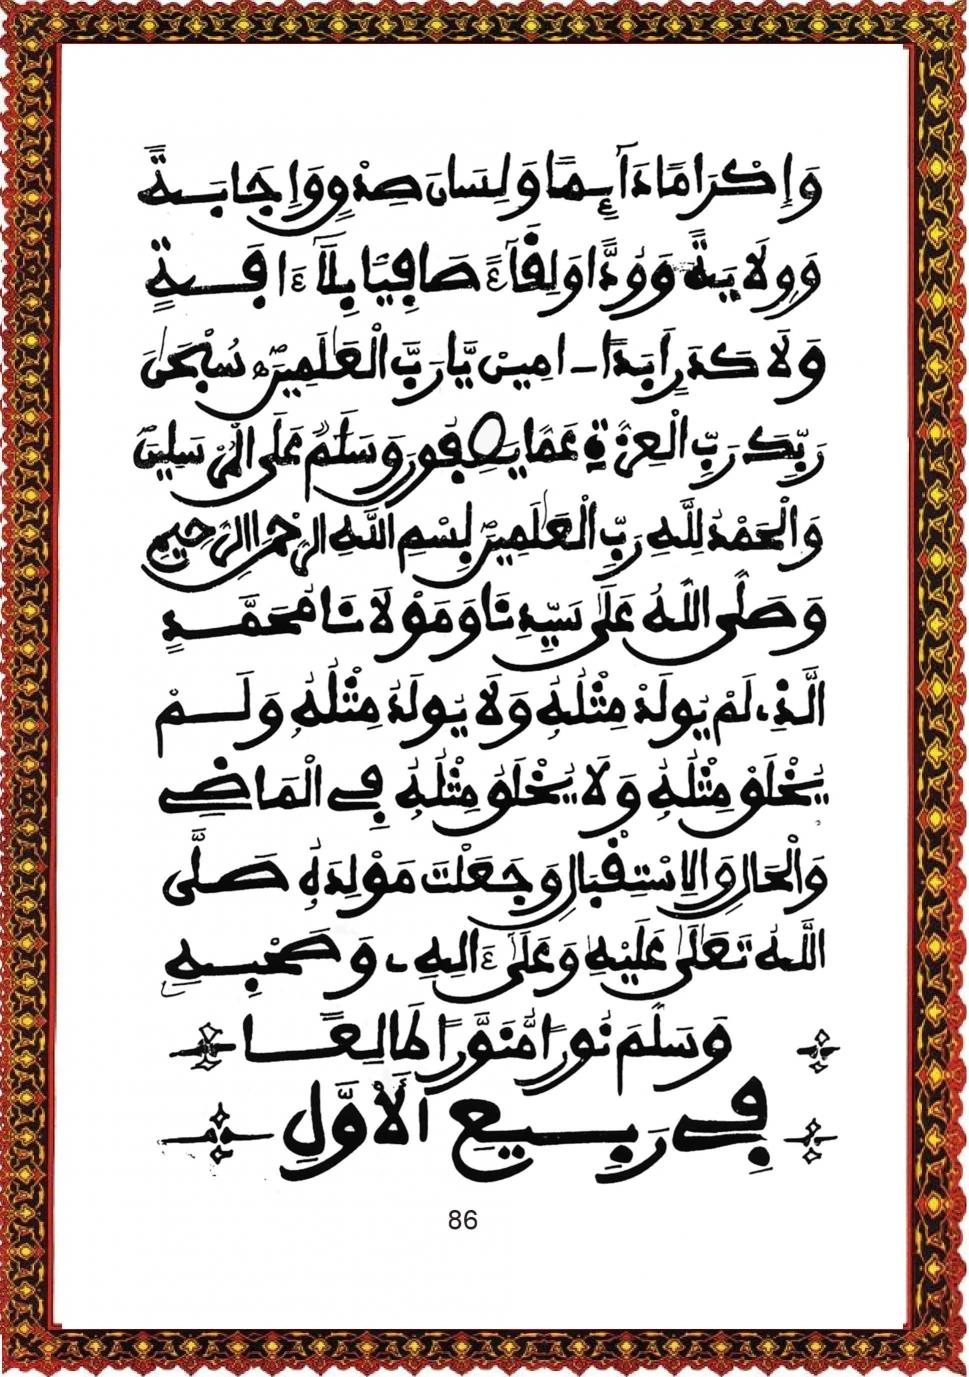 وَإِكْرَامًا دَآئِمًا وَلِسَانَ صِدْقٍ وَإِجَابَةً
وَوِلَايَةً وَوُدًّا وَلِقَآءً صَافِيًا بِلَآ ءَافَةٍ
وَلَا كَدَرٍ أَبَدًا ـ امِينْ يَّارَبَّ الْعَٰلَمِينَ سُبْحَٰنَ
رَبِّكَ رَبِّ الْعِزَّةِ عَمَّا يَصِفُونَ وَسَلَٰمٌ عَلَى الْمُرْسَلِينَ
وَالْحَمْدُ لِلَّهِ رَبِّ الْعَٰلَمِينَ بِسْمِ اللَّهِ الرَّحْمَٰنِ الرَّحِيمِ
وَصَلَّى اللَّهُ عَلَىٰ سَيِّدِنَا وَمَوْلَانَا مُحَمَّدٍ
الَّذِے لَمْ يُولَدْ مِثْلُهُ وَلَا يُولَدُ مِثْلُهُ وَلَمْ
يُخْلَقْ مِثْلُهُ وَلَا يُخْلَقُ مِثْلُهُ فِے الْمَاضِے
وَالْحَالِ وَالِاسْتِقْبَالِ وَجَعَلْتَ مَوْلِدَهُ صَلَّى
اللَّهُ تَعَٰلَىٰ عَلَيْهِ وَعَلَىٰ ءَالِهِۦ وَصَحْبِهِ
وَسَلَّمَ نُورًا مُّنَوَّرًا طَالِعًا
فِے رَبِيعِ الْأَوَّلِ
86